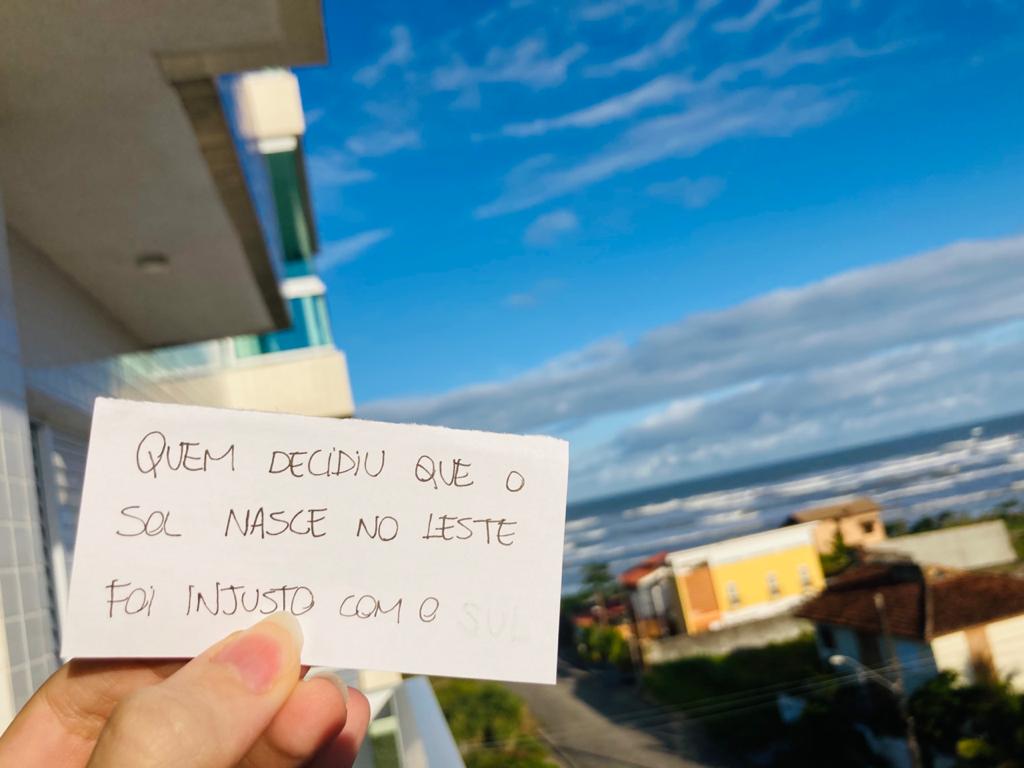 QUEM DECIDIU QUE O
SOL NASCE NO LESTE
FOI INJUSTO COM O SUL